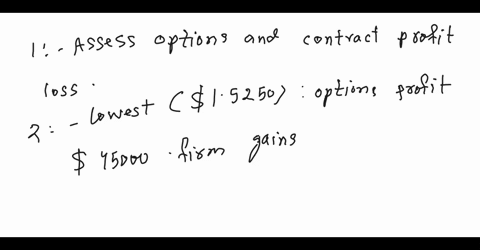 1:- Assess options and contract profit
loss.
2:- lowest ($1.5250): options profit
$ 45000 . firm gains